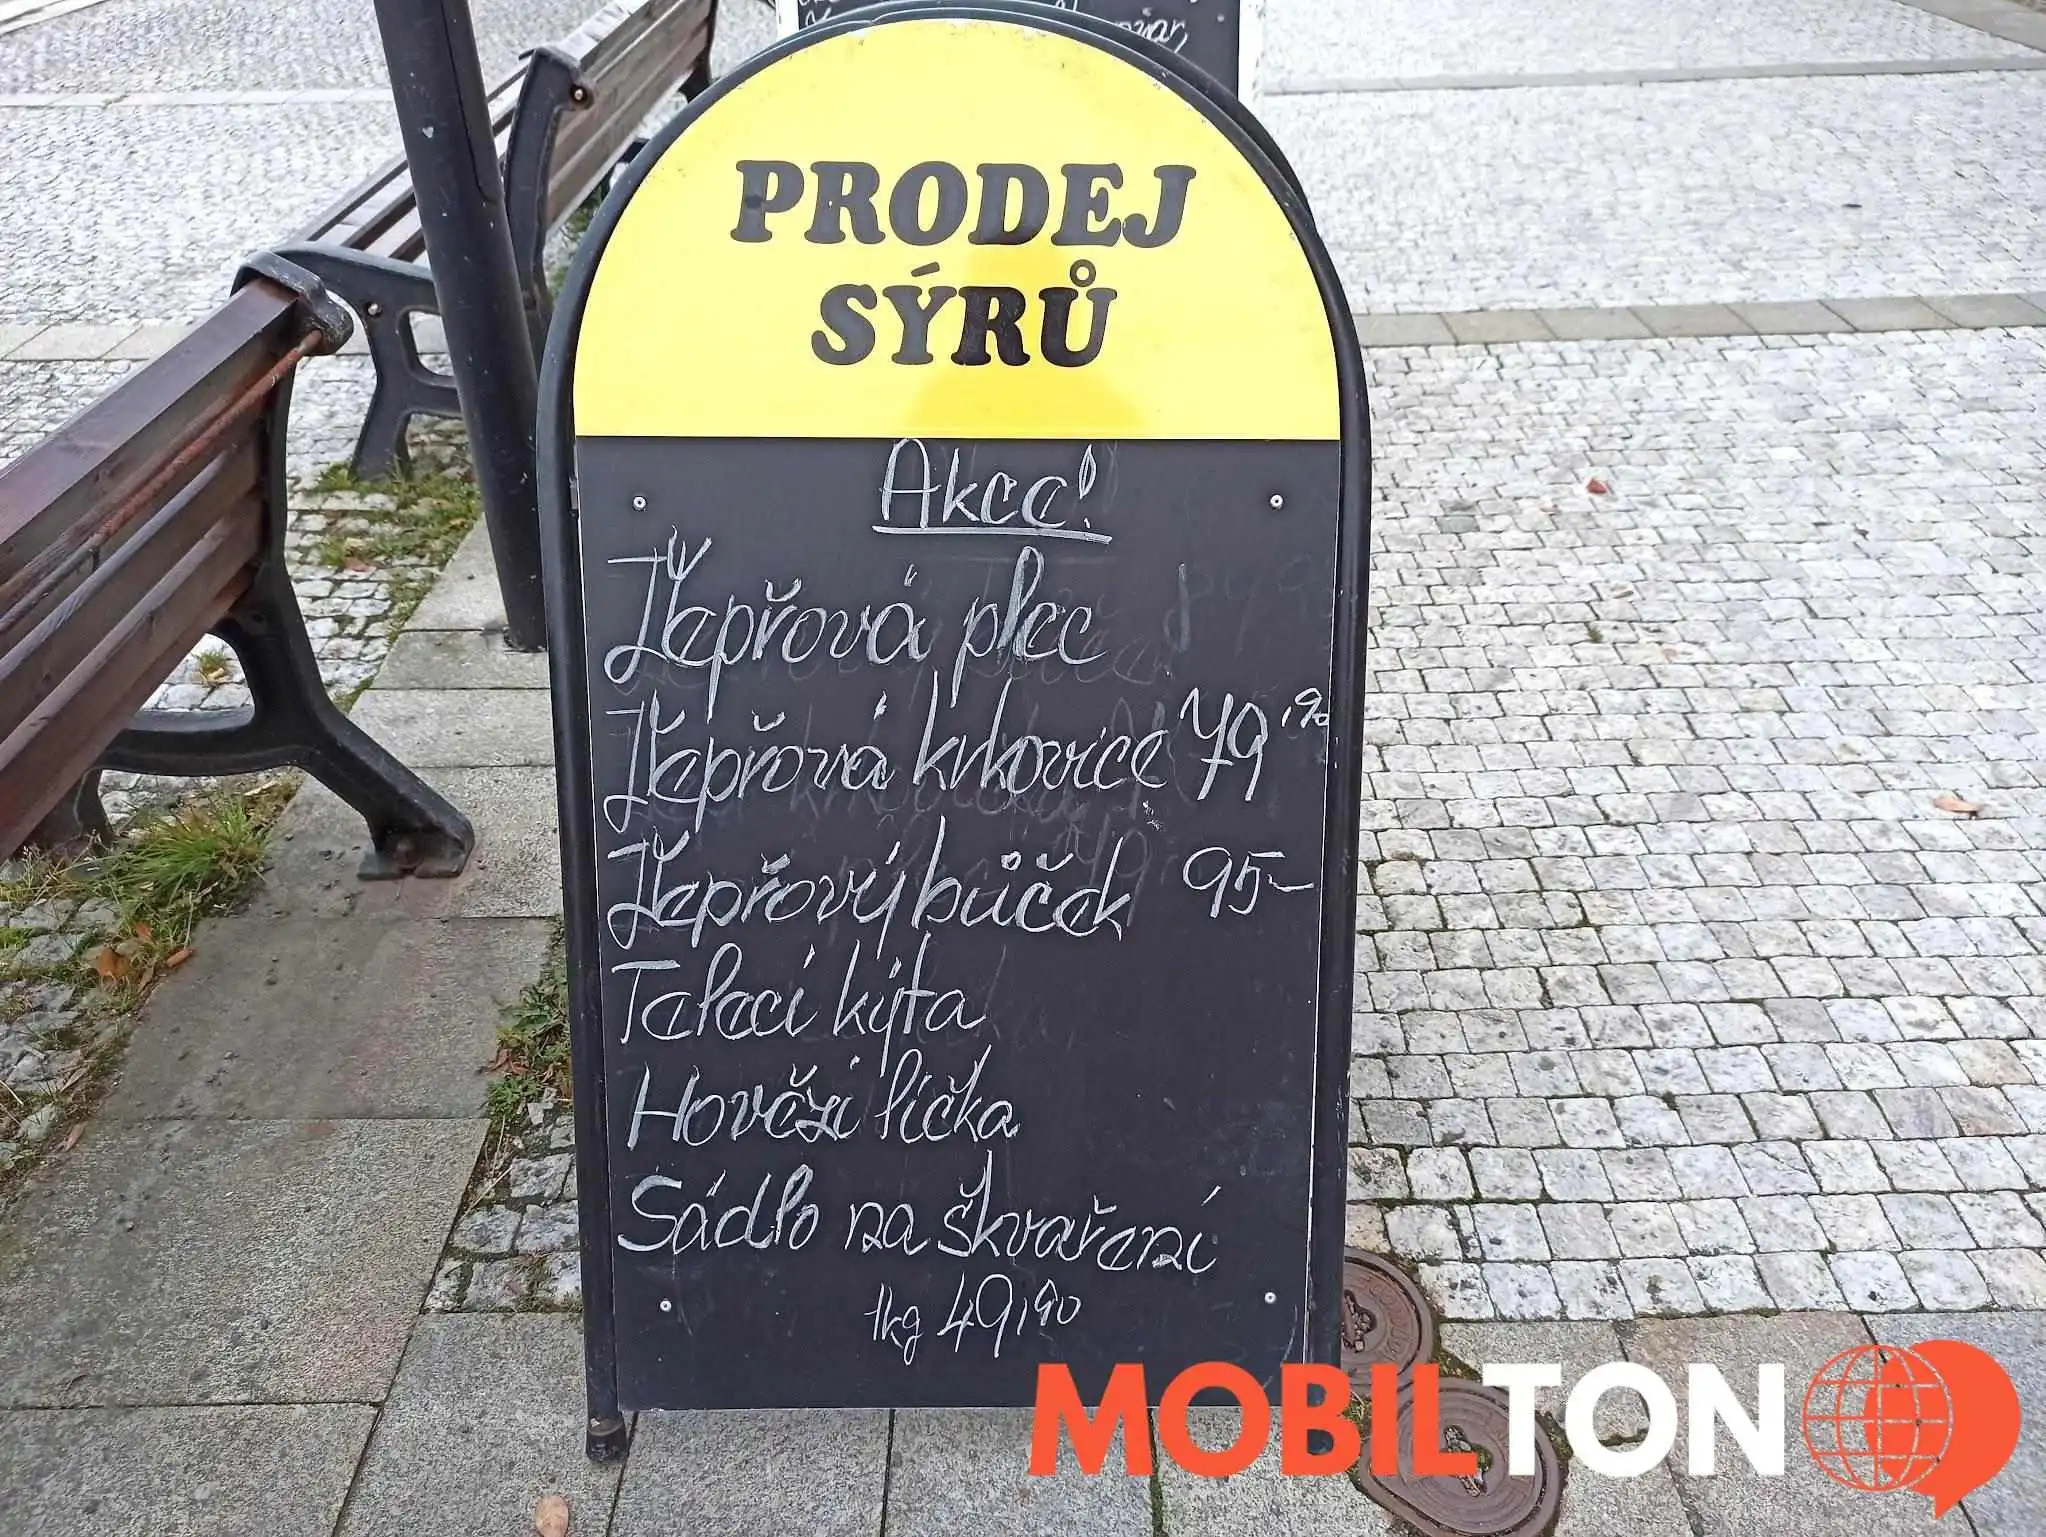 PRODEJ
SÝRŮ
Akce!
Vepřová plec
Vepřová krkovice 79,90
Vepřový bůček 95-
Telecí kýta
Hovězí líčka
Sádlo na škvaření
1kg 49,90
MOBILTON